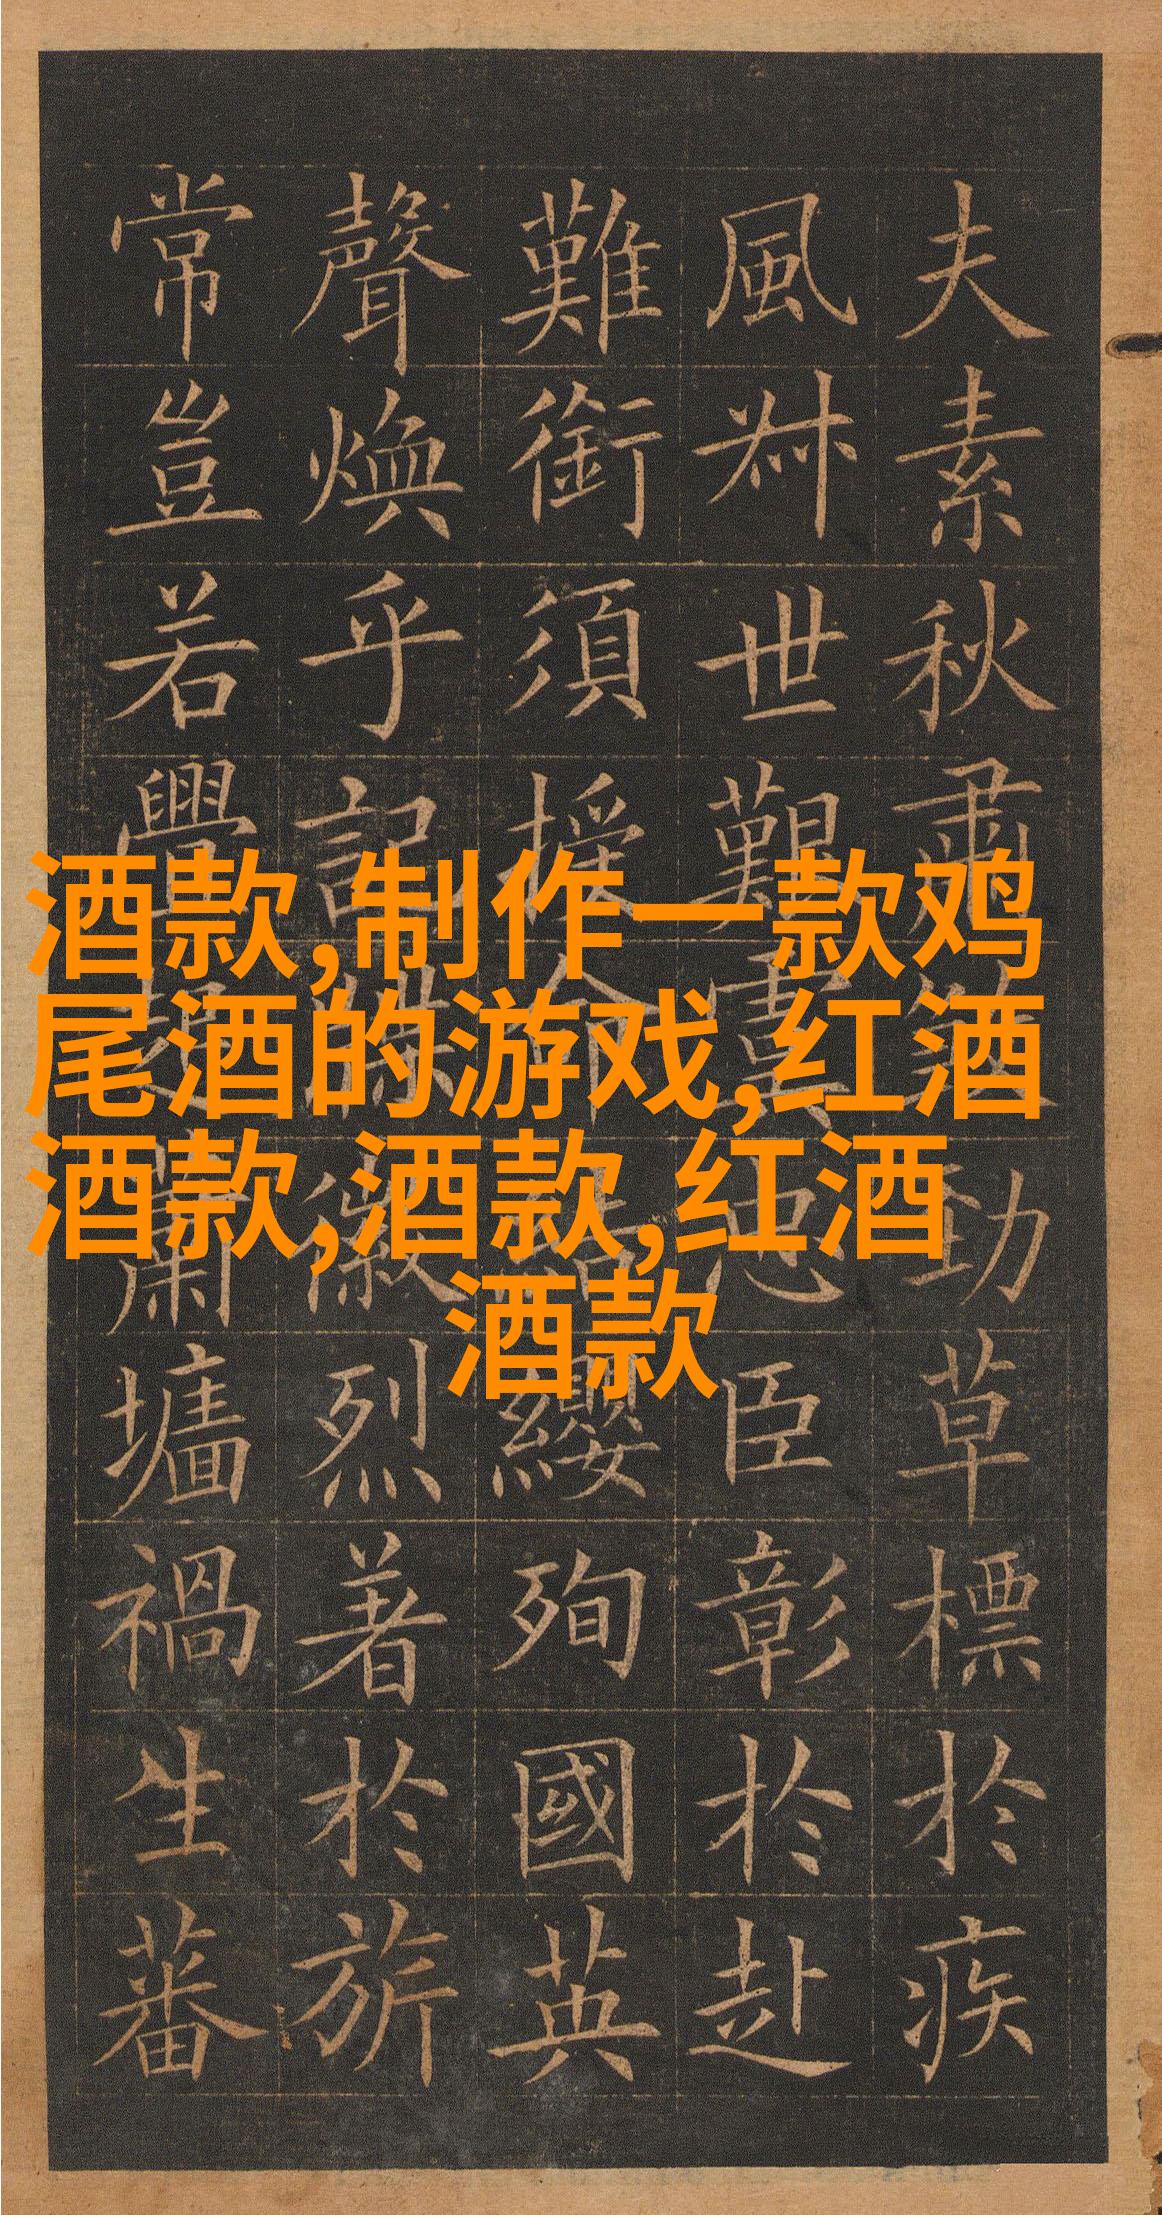 酒款,制作一款鸡
尾酒的游戏,红酒
酒款,酒款,红酒
酒款
夫素秋肅勁草標於疾
風叔世艱虞忠臣彰於赴
難銜須授命纓殉國英
聲煥乎記徽烈著於旂
常豈若蕭墻禍生蕃